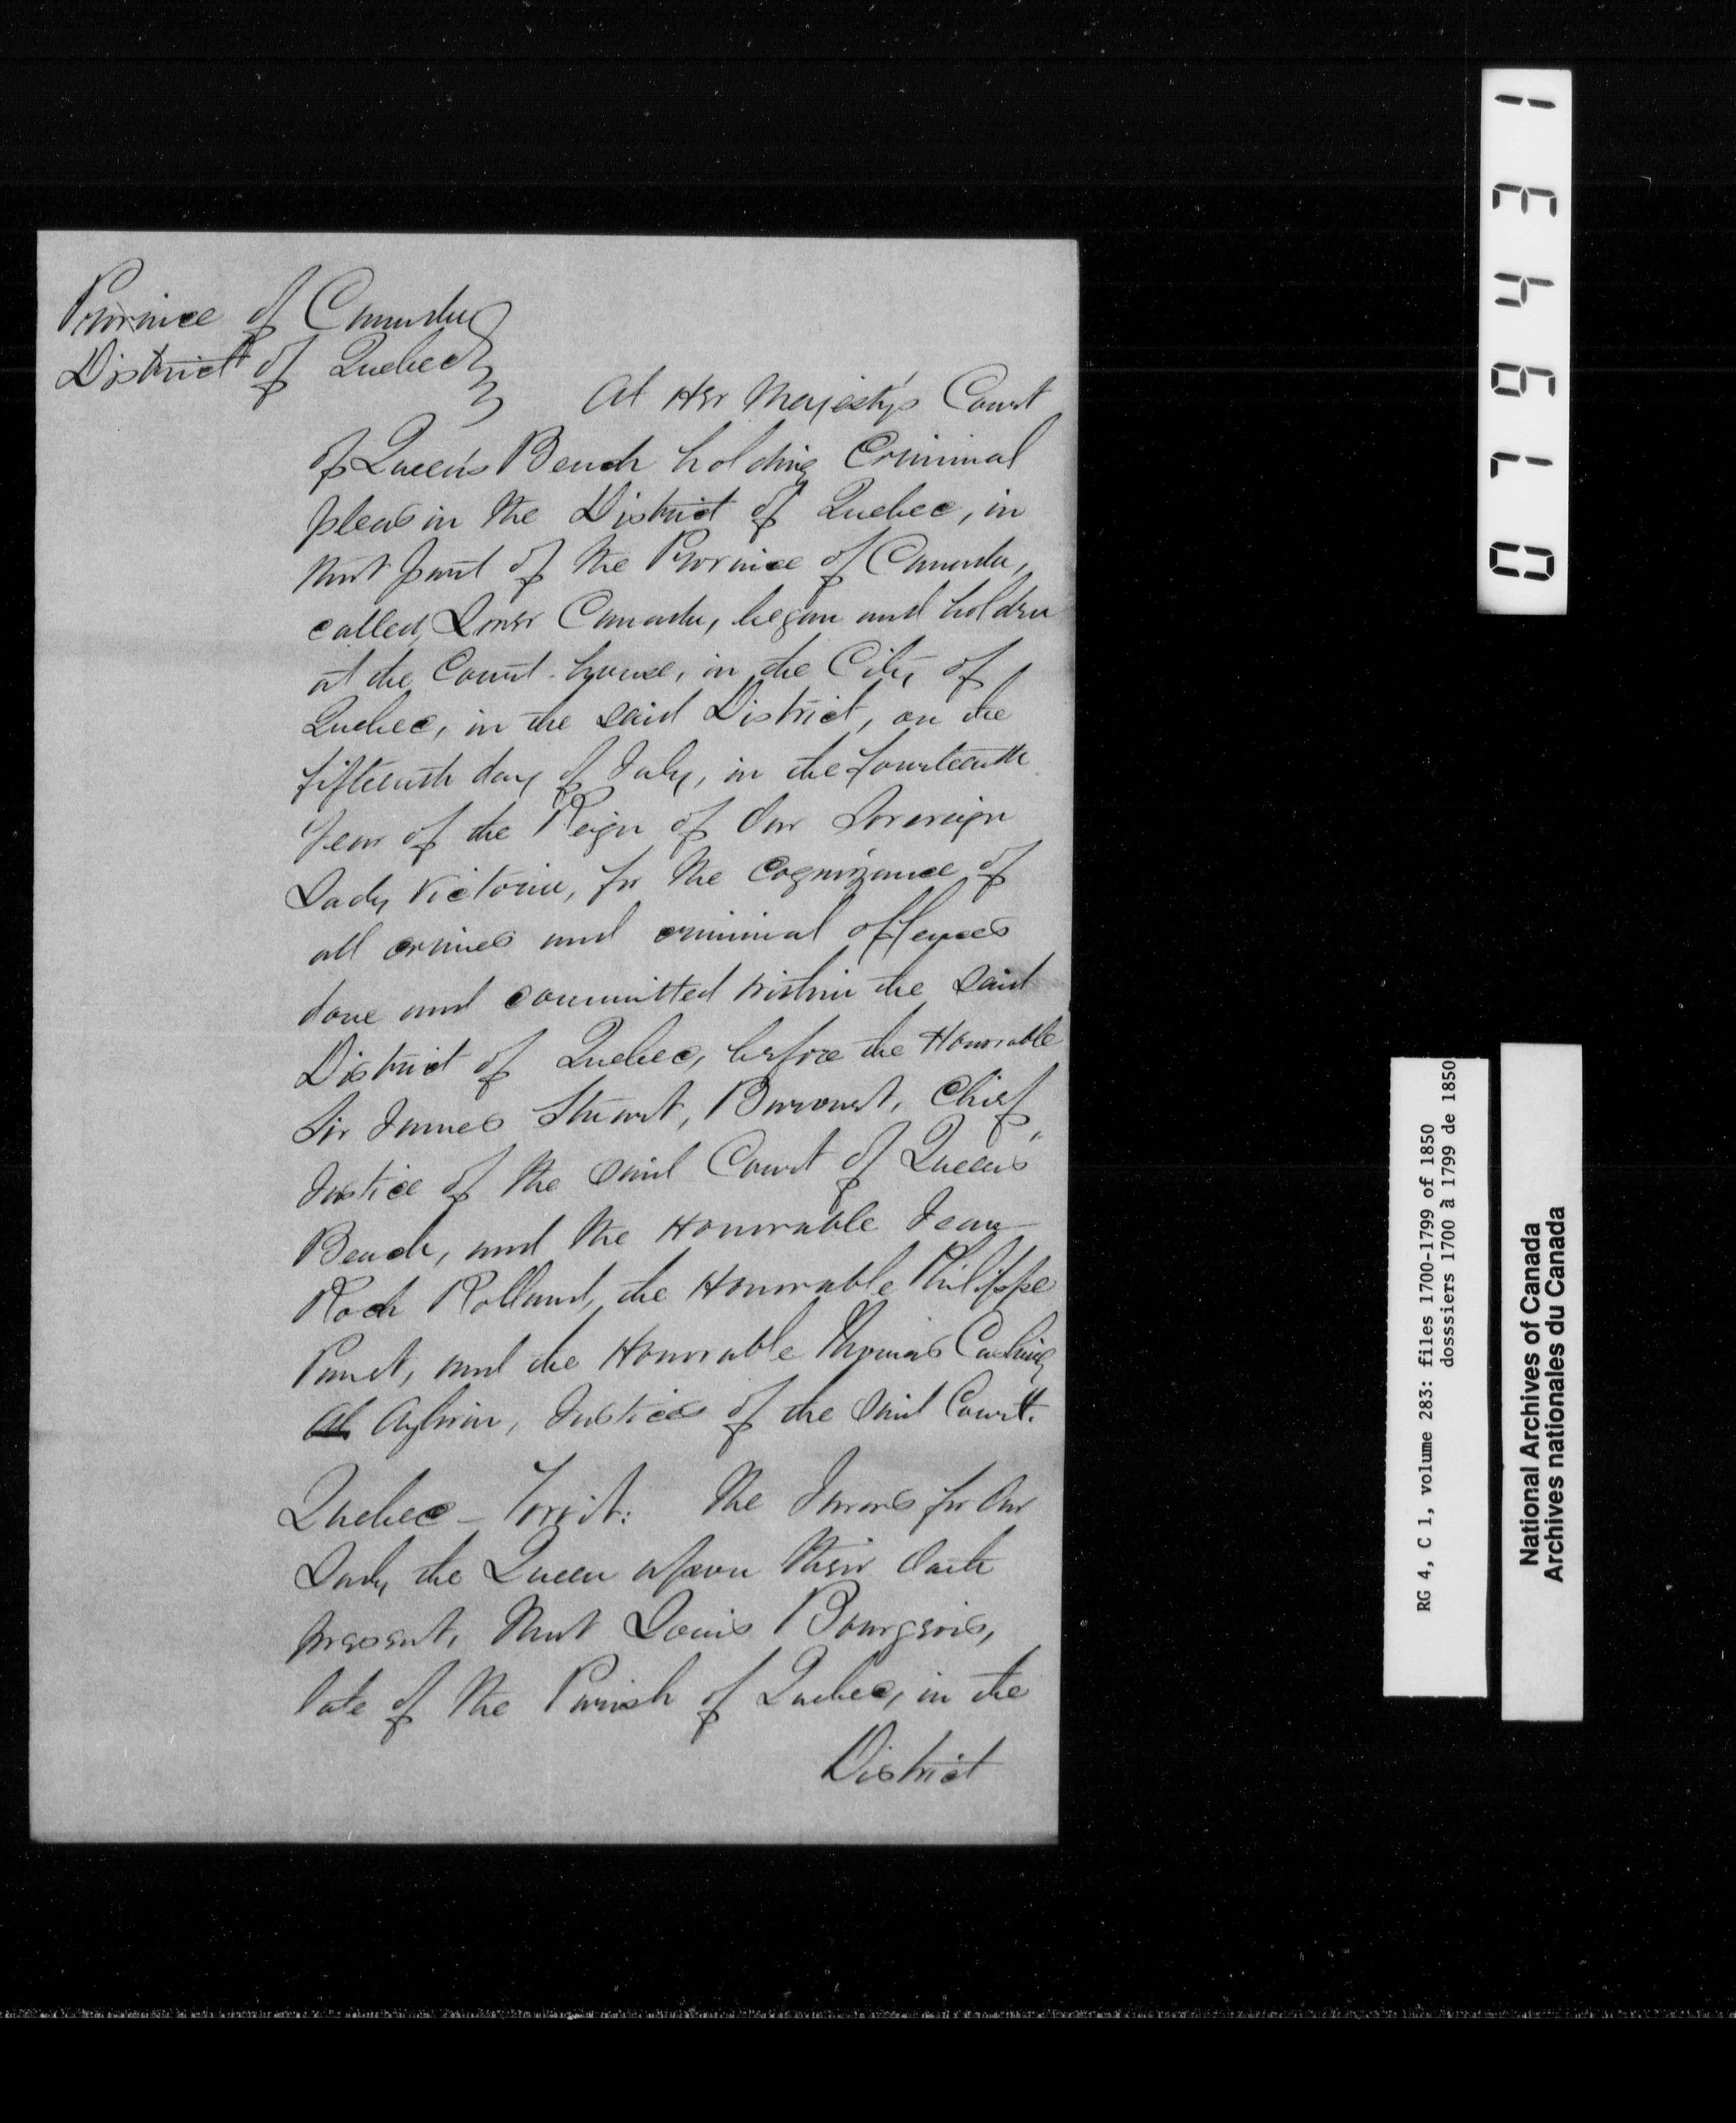 Province of Canada
District of Quebec
At Her Majesty's Court
of Queen's Bench holding Criminal
pleas in the District of Quebec, in
that part of the Province of Canada,
called, Lower Canada, began and holden
at the Court-house, in the City of
Quebec, in the said District, on the
fifteenth day of July, in the fourteenth
Year of the Reign of Our Sovereign
Lady Victoria, for the Cognizance of
all crimes and criminal offences
done and committed within the said
District of Quebec, before the Honorable
Sir James Stuart, Baronet, Chief
Justice of the said Court of Queen's
Bench, and the Honorable Jean
Roch Rolland, the Honorable Philippe
Panet, and the Honorable Thomas Cushing
Al Aylwin, Justices of the said Court.
Quebec - Towit: The Jurors for Our
Lady the Queen upon their Oath
present, that Louis Bourgeois,
late of the Parish of Quebec, in the
District
079431
RG 4, C 1, volume 283: files 1700-1799 of 1850
dosssiers 1700 à 1799 de 1850
National Archives of Canada
Archives nationales du Canada